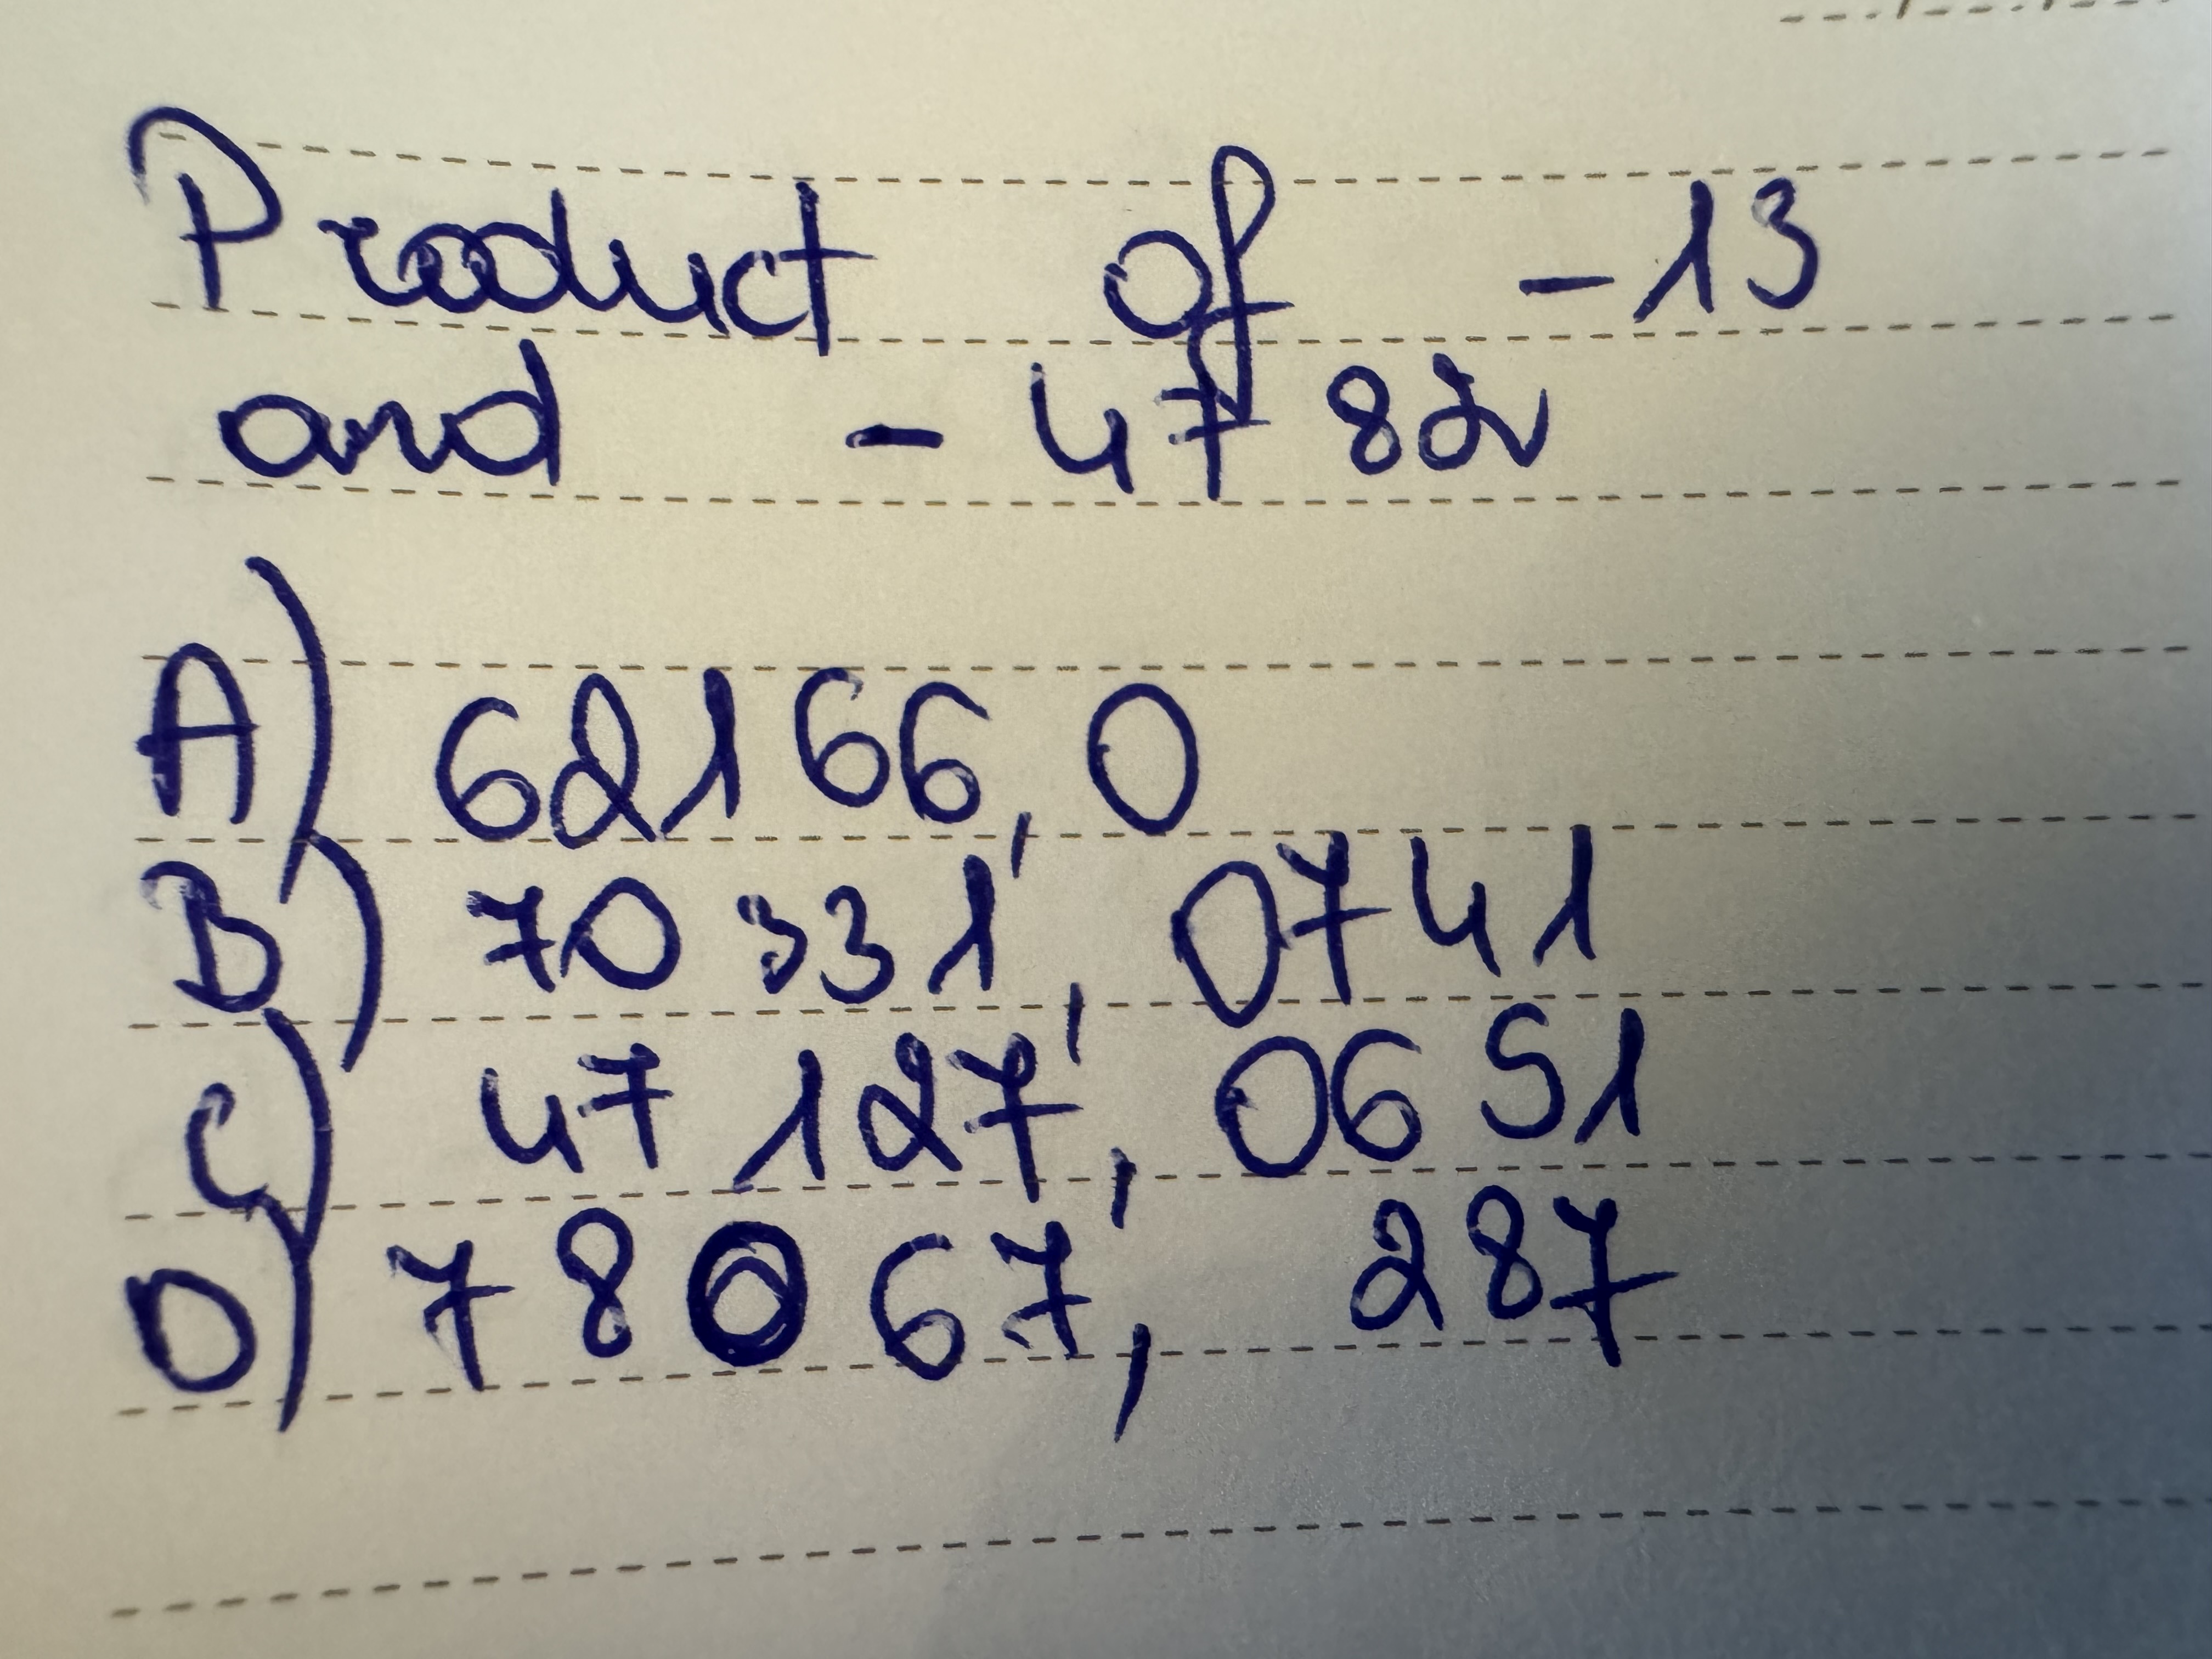 Product of -13
and - 4782
A) 62166,0
B) 70331,0741
C) 47127,0651
D) 78067,287